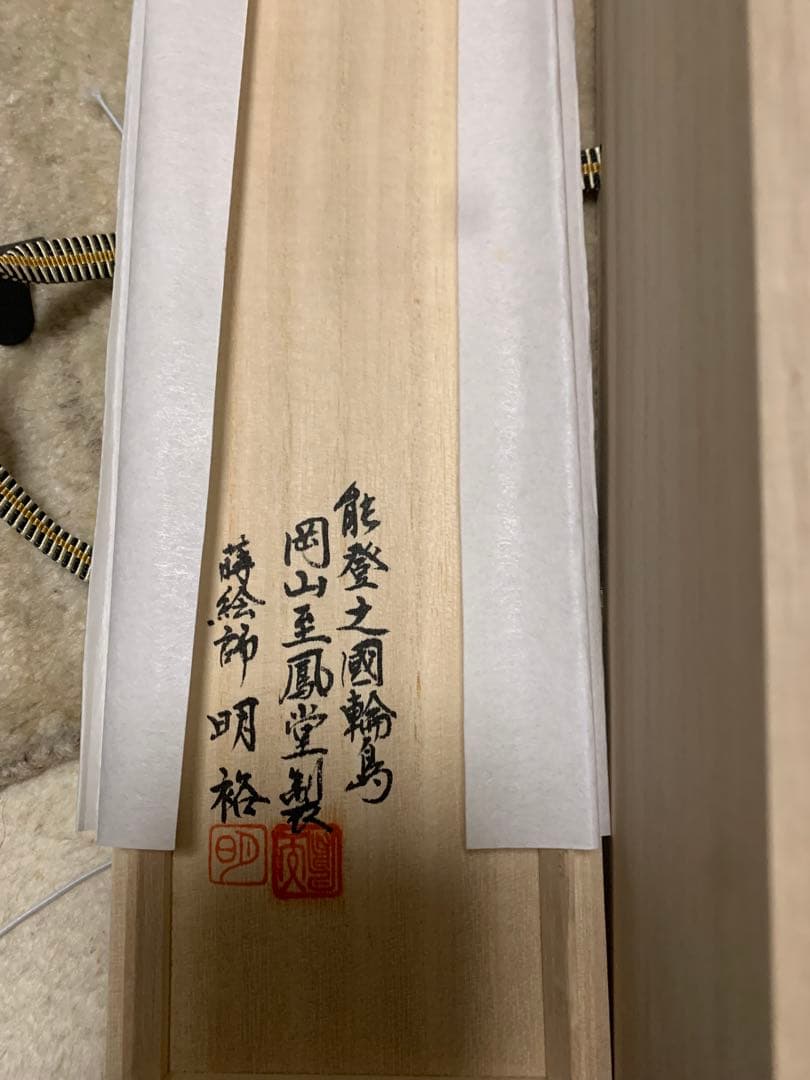 能登之國輪島
岡山至鳳堂製
蒔絵師 明裕
明